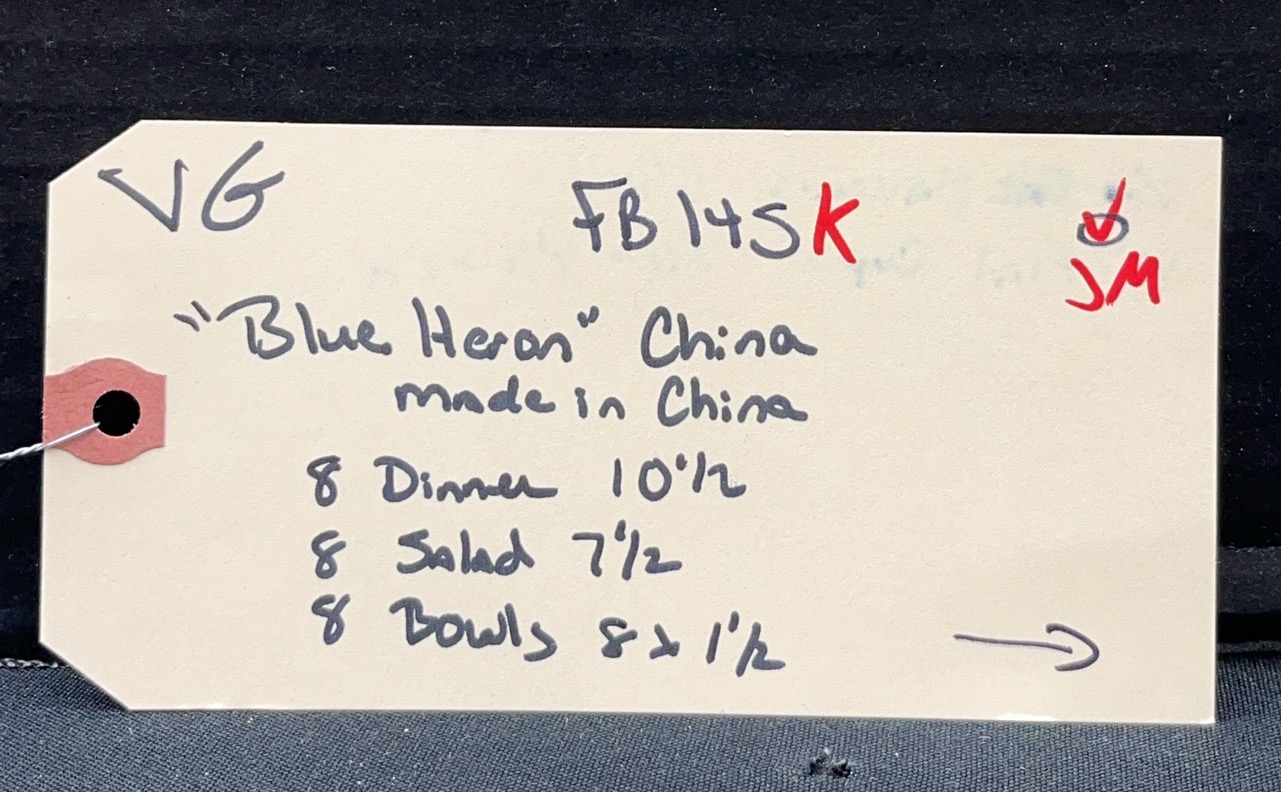 VG FB 145K
JM
"Blue Heron" China
made in China
8 Dinner 10 1/2
8 Salad 7 1/2
8 Bowls 8 x 1 1/2 →